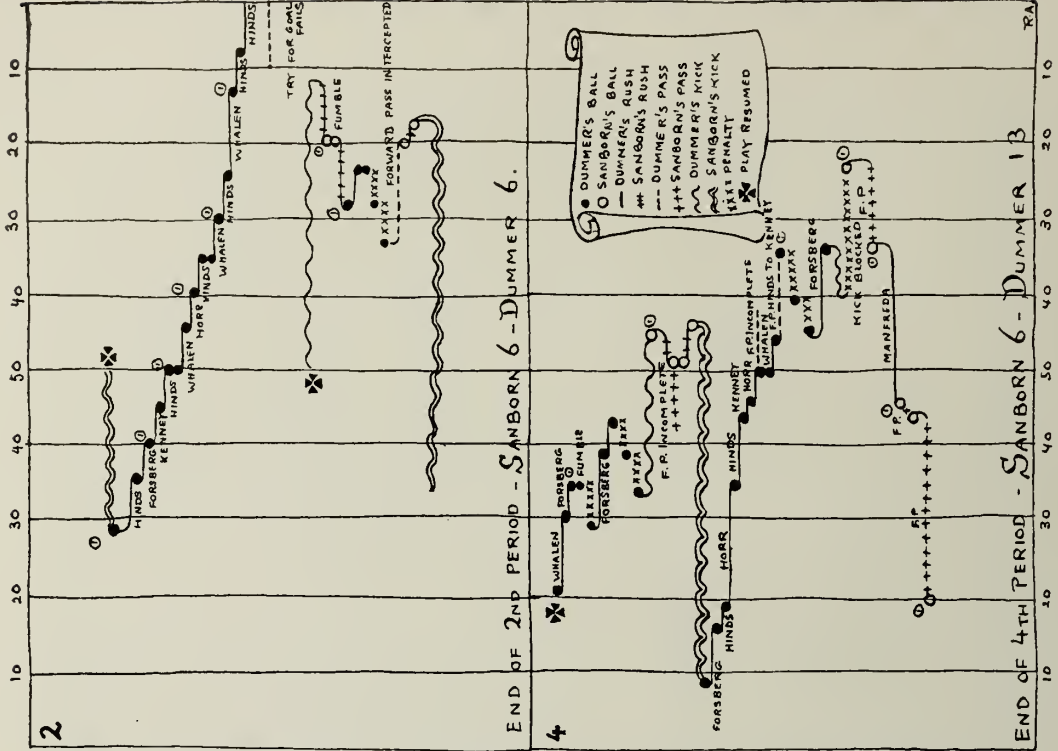 2
10
20
30
40
50
40
30
20
10
HINDS
FORSBERG
KENNEY
HINDS
WHALEN
HORR
HINDS
WHALEN
HINDS
WHALEN
HINDS
HINDS
TRY FOR GOAL
FAILS
FUMBLE
FORWARD PASS INTERCEPTED
END OF 2ND PERIOD - SANBORN 6 - DUMMER 6.
4
WHALEN
FORSBERG
FUMBLE
FORSBERG
F.P. INCOMPLETE
FORSBERG
HINDS
HORR
HINDS
KENNEY
HORR F.P. INCOMPLETE
WHALEN
F.P. HINDS TO KENNEY
FORSBERG
KICK BLOCKED
F.P.
MANFREDA
F.P.
F.P.
DUMMER'S BALL
SANBORN'S BALL
DUMMER'S RUSH
SANBORN'S RUSH
DUMMER'S PASS
SANBORN'S PASS
DUMMER'S KICK
SANBORN'S KICK
XXX PENALTY
PLAY RESUMED
END OF 4TH PERIOD - SANBORN 6 - DUMMER 13
RA
10
20
30
40
50
40
30
20
10